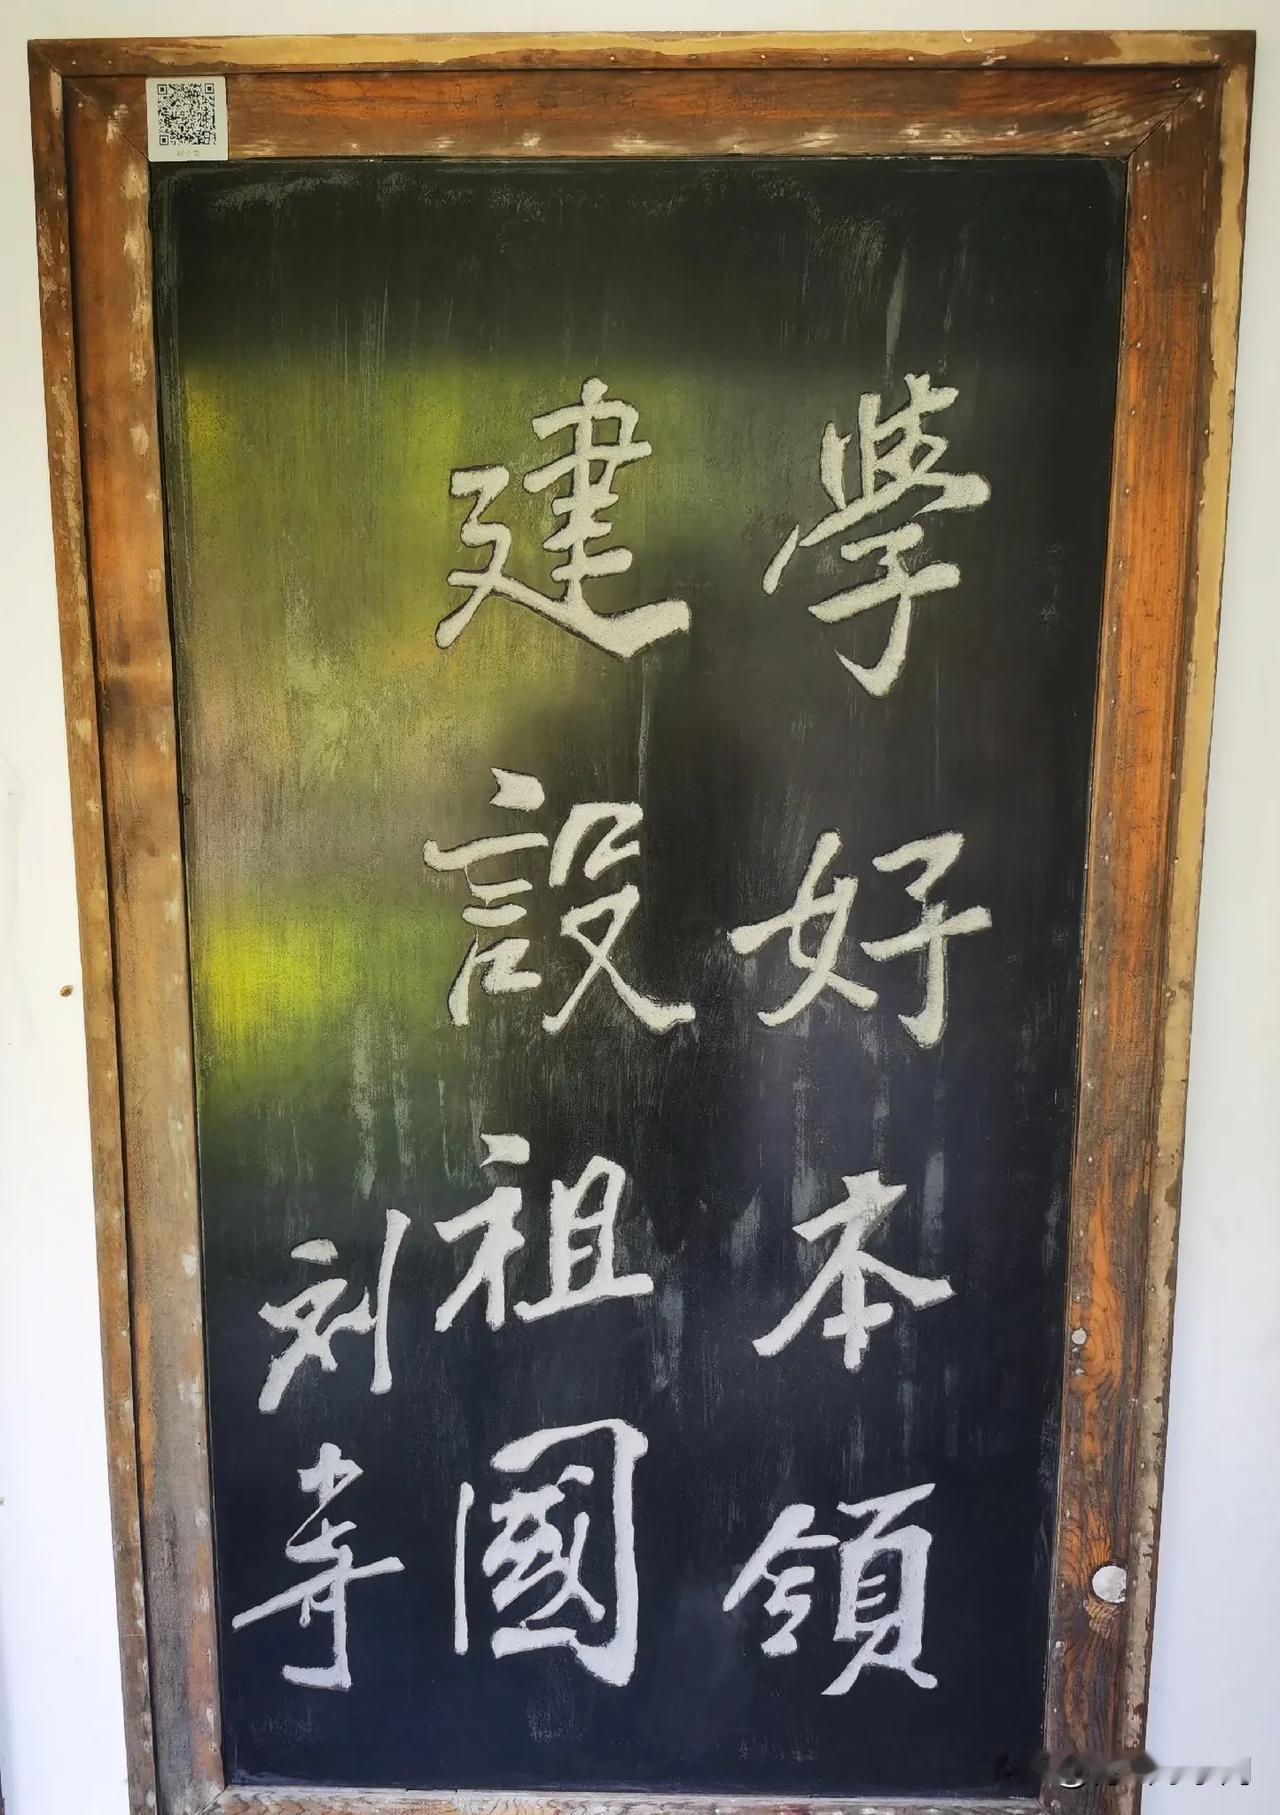 學好本領
建設祖國
刘寄